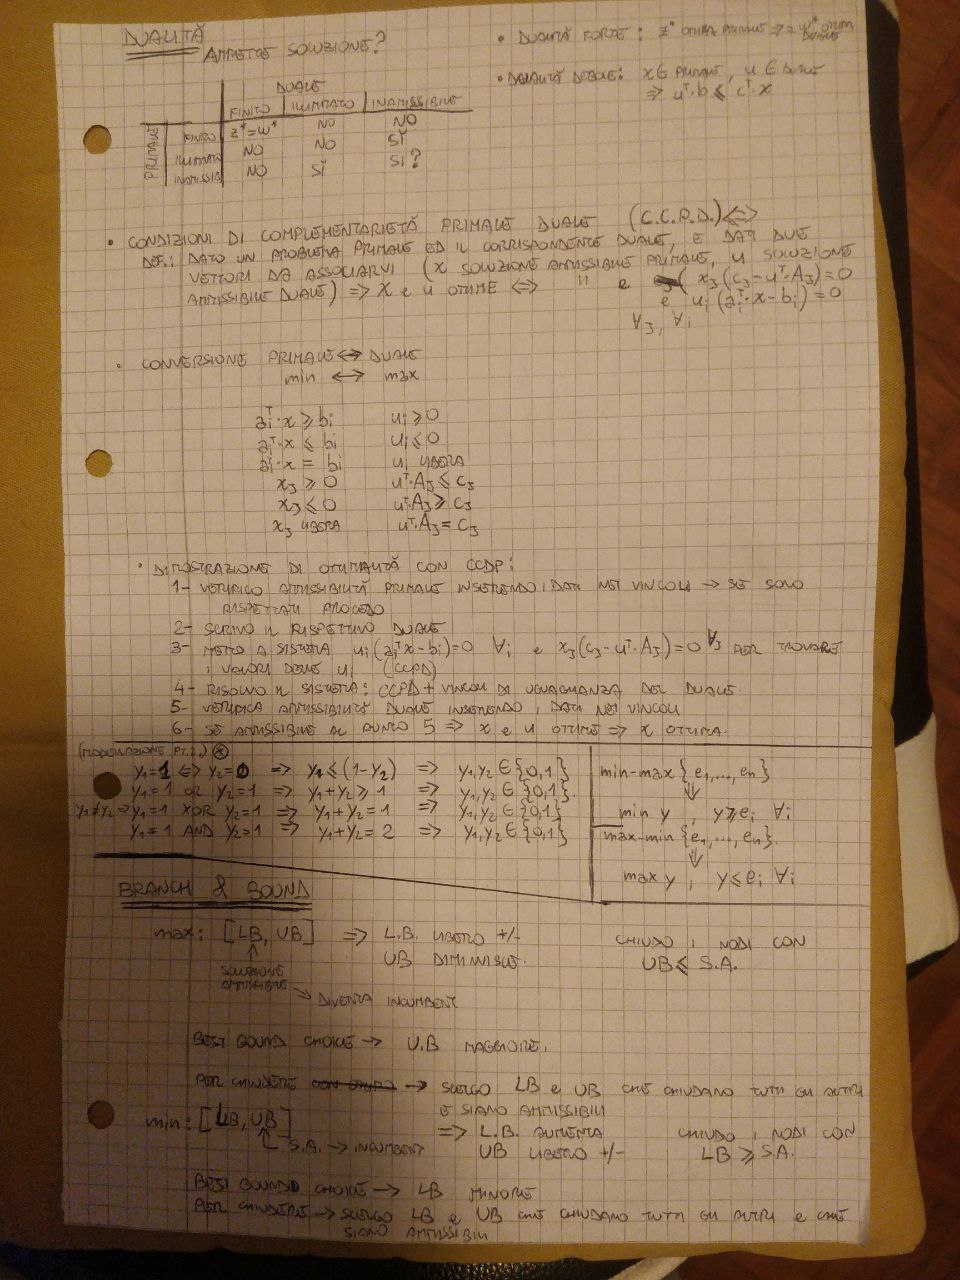 DUALITÀ
AMMETTE SOLUZIONE?
• DUALITÀ FORTE: z* OTTIMA PRIMALE => = w* OTTIMA DUALE
• DUALITÀ DEBOLE: x ∈ PRIMALE, u ∈ DUALE
=> uᵀ·b ≤ cᵀ·x
DUALE
FINITO | ILLIMITATO | INAMISSIBILE
PRIMALE
FINITO z*=w* NO NO
ILLIMITATO NO NO SÌ
INAMISSIB. NO SÌ SI?
• CONDIZIONI DI COMPLEMENTARIETÀ PRIMALE DUALE (C.C.P.D.) <=>
DEF.: DATO UN PROBLEMA PRIMALE ED IL CORRISPONDENTE DUALE, E DATI DUE
VETTORI DA ASSOCIARVI (x SOLUZIONE AMMISSIBILE PRIMALE, u SOLUZIONE
AMMISSIBILE DUALE) => x e u OTTIME <=> " e ( xJ(cJ-uᵀ·AJ)=0
e ui(aiᵀ·x-bi)=0
∀J, ∀i
• CONVERSIONE PRIMALE <=> DUALE
min <=> max
aiᵀ·x ≥ bi ui ≥ 0
aiᵀ·x ≤ bi ui ≤ 0
aiᵀ·x = bi ui LIBERA
xJ ≥ 0 uᵀ·AJ ≤ cJ
xJ ≤ 0 uᵀ·AJ ≥ cJ
xJ LIBERA uᵀ·AJ = cJ
• DIMOSTRAZIONE DI OTTIMALITÀ CON CCDP:
1- VERIFICO AMMISSIBILITÀ PRIMALE INSERENDO I DATI NEI VINCOLI -> SE SONO
RISPETTATI PROCEDO
2- SCRIVO IL RISPETTIVO DUALE
3- METTO A SISTEMA ui(aiᵀx-bi)=0 ∀i e xJ(cJ-uᵀ·AJ)=0 ∀J PER TROVARE
I VALORI DELLE ui (CCPD)
4- RISOLVO IL SISTEMA: CCPD + VINCOLI DI UGUAGLIANZA DEL DUALE.
5- VERIFICA AMMISSIBILITÀ DUALE INSERENDO I DATI NEI VINCOLI
6- SE AMMISSIBILE AL PUNTO 5 => x e u OTTIME => x OTTIMA.
(MODELLAZIONE PT.2.) ⊛
y₁=1 <=> y₂=0 => y₁ ≤ (1-y₂) => y₁,y₂ ∈ {0,1}
y₁=1 OR y₂=1 => y₁+y₂ ≥ 1 => y₁,y₂ ∈ {0,1}.
y₁≠y₂ => y₁=1 XOR y₂=1 => y₁+y₂=1 => y₁,y₂ ∈ {0,1}
y₁=1 AND y₂=1 => y₁+y₂=2 => y₁,y₂ ∈ {0,1}
min-max {e₁,...,eₙ}
⇓
min y, y ≥ ei ∀i
max-min {e₁,...,eₙ}.
⇓
max y, y ≤ ei ∀i
BRANCH & BOUND
max: [LB, UB] => L.B. LIBERO +/-
UB DIMINISCE.
CHIUDO I NODI CON
UB ≤ S.A.
SOLUZIONE
AMMISSIBILE
-> DIVENTA INCUMBENT
BEST BOUND CHOICE -> U.B MAGGIORE.
PER CHIUDERE -> SCELGO LB e UB CHE CHIUDANO TUTTI GLI ALTRI
E SIANO AMMISSIBILI
min: [LB, UB] => L.B. AUMENTA
UB LIBERO +/-
CHIUDO I NODI CON
LB ≥ S.A.
S.A. -> INCUMBENT
BEST BOUND CHOICE -> LB MINORE
PER CHIUDERE -> SCELGO LB e UB CHE CHIUDANO TUTTI GLI ALTRI E CHE
SIANO AMMISSIBILI